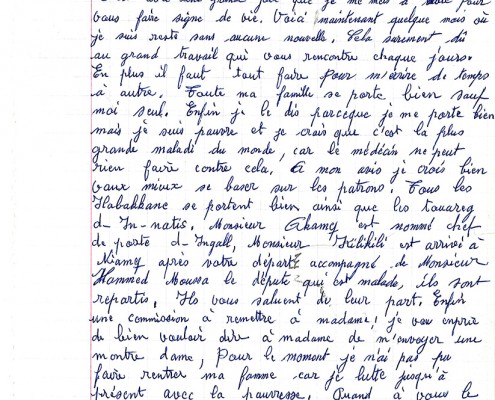 grande joie que je me mets à pour
vous faire signe de vie. Voici maintenant quelque mois où
je suis resté sans aucune nouvelle. Cela surement dû
au grand travail qui vous rencontre chaque jours.
En plus il faut tout faire pour m'écrire de temps
à autre. Toute ma famille se porte bien sauf
moi seul. Enfin je le dis parceque je me porte bien
mais je suis pauvre et je crois que c'est la plus
grande maladi du monde, car le médécin ne peut
rien faire contre cela. A mon avis je crois bien
vaux mieux se baser sur les patrons. Tous les
Kabakkane se portent bien ainsi que les touareg
d- In- natis. Monsieur Ahamey est nommé chef
de poste d- Ingall, Monsieur Kilikili est arrivé à
Niamey après votre départ accompagné de Monsieur
Hammed Moussa le député qui est malade, ils sont
repartis. Ils vous saluent de leur part. Enfin
une commission à remettre à madame! je vou enprie
de bien vouloir dire à madame de m'envoyer une
montre dame, Pour le moment je n'ai pas pu
faire rentrer ma famme car je lutte jusqu'à
présent avec la pauvresse. Quand à vous le